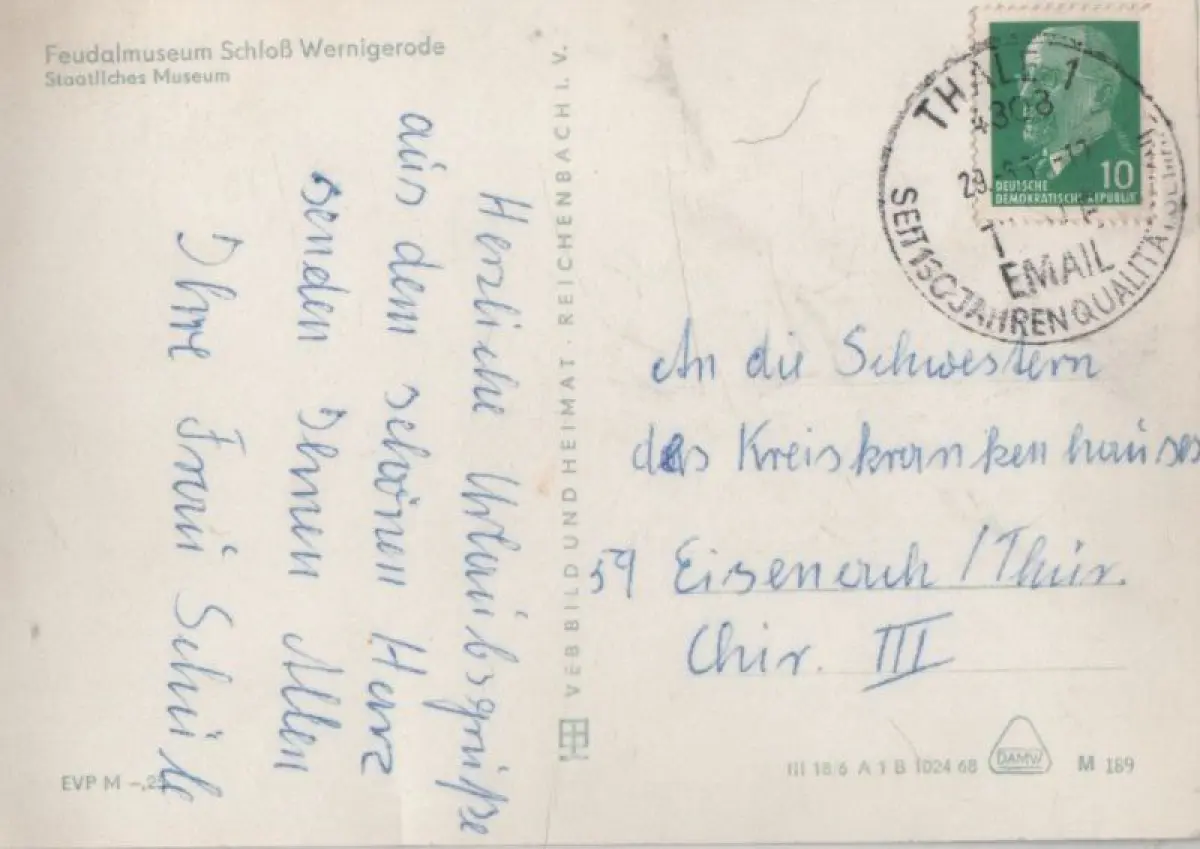 Feudalmuseum Schloß Wernigerode
Staatliches Museum
Herzliche Urlaubsgrüße
aus dem schönen Harz
senden Ihnen Allen
Ihre Frau Schüile
EVP M –,25
VEB BILD UND HEIMAT · REICHENBACH I. V.
THALE 1
4308
EMAIL
SEIT 150 JAHREN QUALITÄT
10
DEUTSCHE
DEMOKRATISCHE REPUBLIK
An die Schwestern
des Kreiskrankenhauses
59 Eisenach / Thür.
Chir. III
III 18 6 A 1 B 1024 68
DAMW
M 189